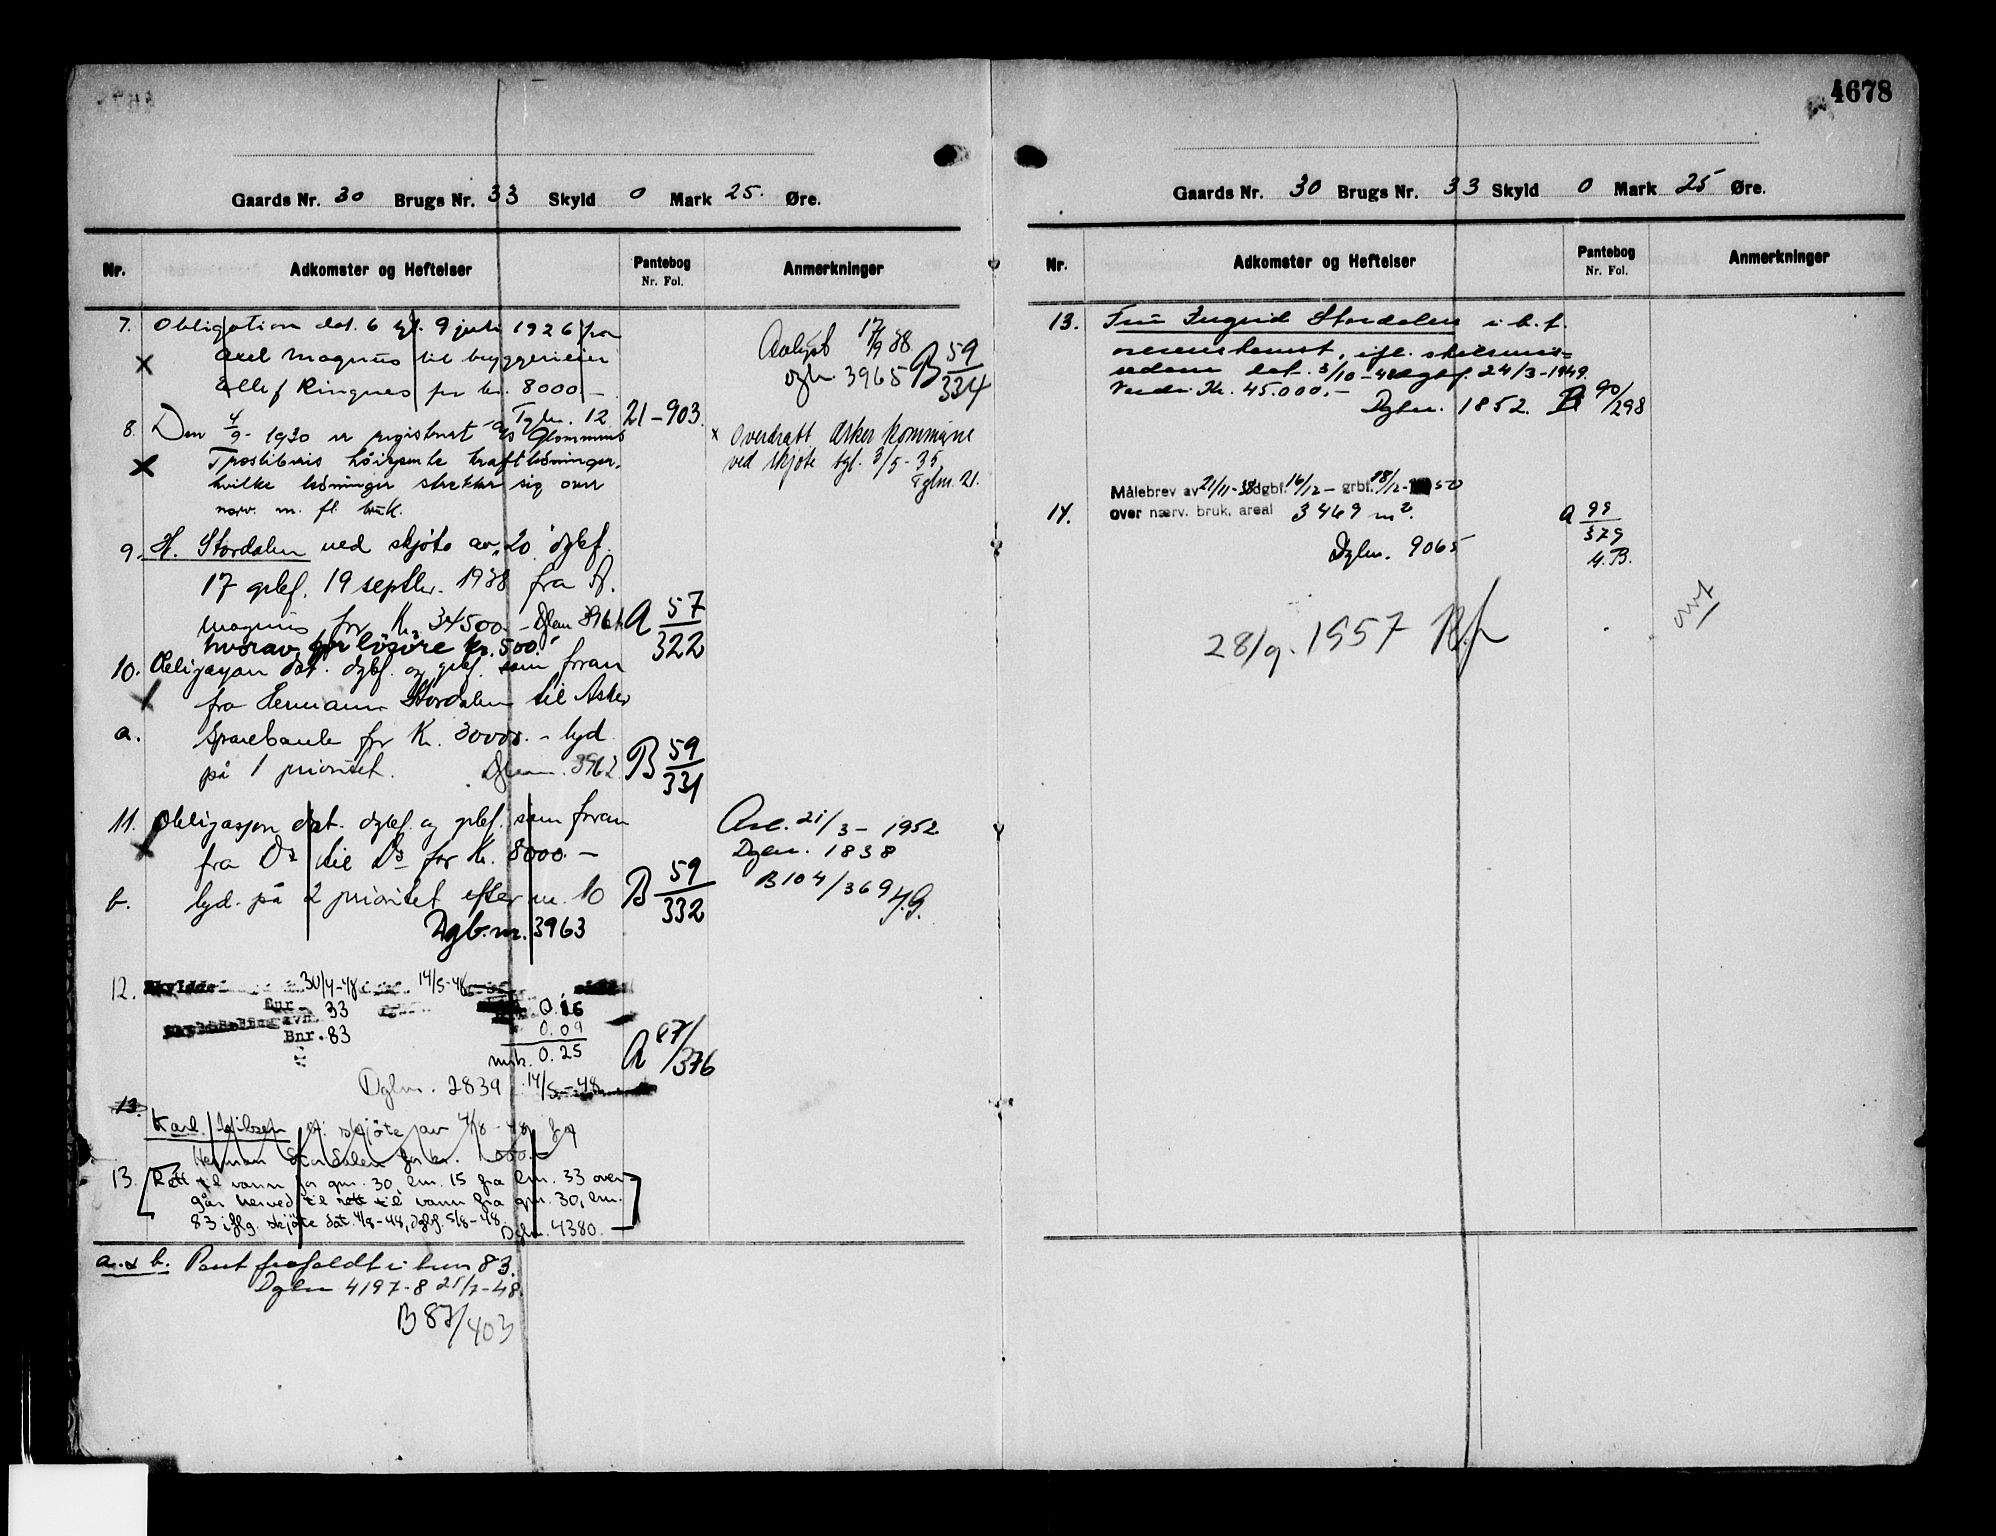 4678
Gaards Nr. 30 Brugs Nr. 33 Skyld 0 Mark 25 Øre.
Nr. Adkomster og Heftelser Pantebog Nr. Fol. Anmerkninger
7. Obligation dat. 6 tgl. 9 juli 1926 fra
Axel Magnus til bryggerieier
Ellef Ringnes for kr. 8000.-
Tglnr. 12 21-903
Avlyst 17/9 38
dgbnr 3965 B 59/334
8. Den 4/9-1930 er registrert A/S Glommens
Træsliberis høispente kraftledninger,
hvilke ledninger strekker sig over
nærv. m. fl. bruk.
x Overdratt Asker kommune
ved skjøte tgl. 3/5-35,
Tglnr. 21.
9. H. Stordalen ved skjøte av 20 dgbf.
17 gbf. 19 septbr. 1938 fra A.
Magnus for Kr. 34500.- Dgbnr 3961 A 57/322
hvorav for løsøre kr. 500.
10. Obligasjon dat. dgbf. og gbf. som foran
fra Hermann Stordalen til Asker
a. Sparebank for Kr. 30000.- lyd.
på 1 prioritet. Dgbnr. 3962 B 59/331
11. Obligasjon dat. dgbf. og gbf. som foran
fra Do til Do for Kr. 8000.-
b. lyd. på 2 prioritet efter nr. 10 B 59/332
Dgb.nr. 3963
Avl. 21/3-1952
Dgbnr. 1838
B 104/369 H.G.
12. Skyldd 30/4-48 14/5-48
Bnr 33 0.16
Skylddeling avh. Bnr. 83 0.09
mrk. 0.25 A 87/376
Dgbnr. 2839 14/5-48
13.
Karl Nilsen e. skjøte av 4/8-48 fra
Herman Stordalen for kr. 1000.-
13. [Rett til vann for gnr. 30, bnr. 15 fra bnr. 33 over-
går herved til rett til vann fra gnr. 30, bnr.
83 iflg. skjøte dat. 4/8-48, dgbf. 5/8-48. Dgbnr. 4380.]
a. & b. Pant frafaldt i bnr 83.
Dgbnr 4197-8 21/7-48.
B 87/403
Gaards Nr. 30 Brugs Nr. 33 Skyld 0 Mark 25 Øre.
Nr. Adkomster og Heftelser Pantebog Nr. Fol. Anmerkninger
13. Fru Ingrid Stordalen i h. t.
overenskomst, ifl. skilsmis=
sedom dat. 3/10-48 dgbf. 24/3-1949.
Verdi Kr. 45.000.-
Dgbnr. 1852. B 90/298
Målebrev av 21/11-38 dgbf. 16/12- grbf. 18/12-50
14. over nærv. bruk, areal 3469 m2. A 99/379
Dgbnr. 9065 H.B.
28/9. 1957
ovf